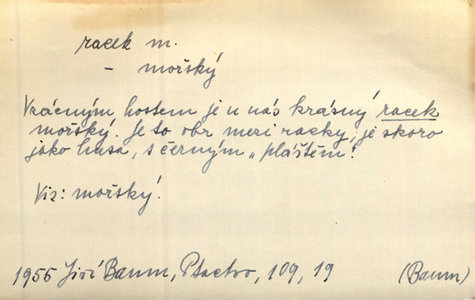 racek m.
- mořský
Vzácným hostem je u nás krásný racek
mořský. Je to obr mezi racky, je skoro
jako husa, s černým „pláštěm".
Viz: mořský.
1955 Jiří Baum, Ptactvo, 109, 19 (Baum)